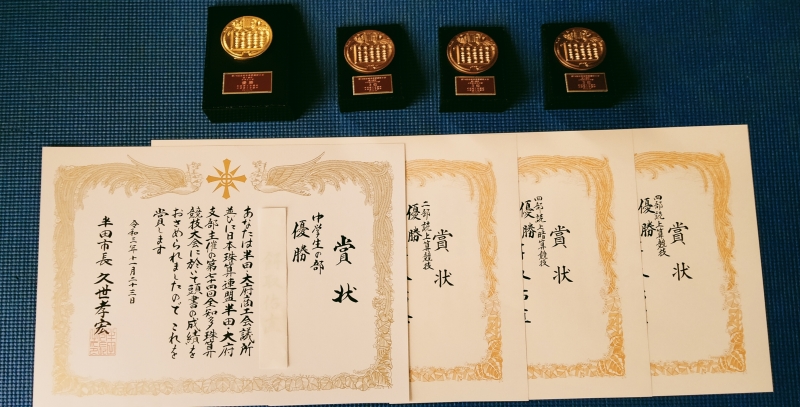 賞状
中学生の部
優勝
あなたは半田・大府商工会議所
並びに日本珠算連盟半田・大府
支部主催の第七十四回全知多珠算
競技大会に於いて頭書の成績を
おさめられましたので これを
賞します
令和三年十一月二十三日
半田市長 久世孝宏
賞状
二部読上算競技
優勝
賞状
四部読上暗算競技
優勝
賞状
四部読上算競技
優勝